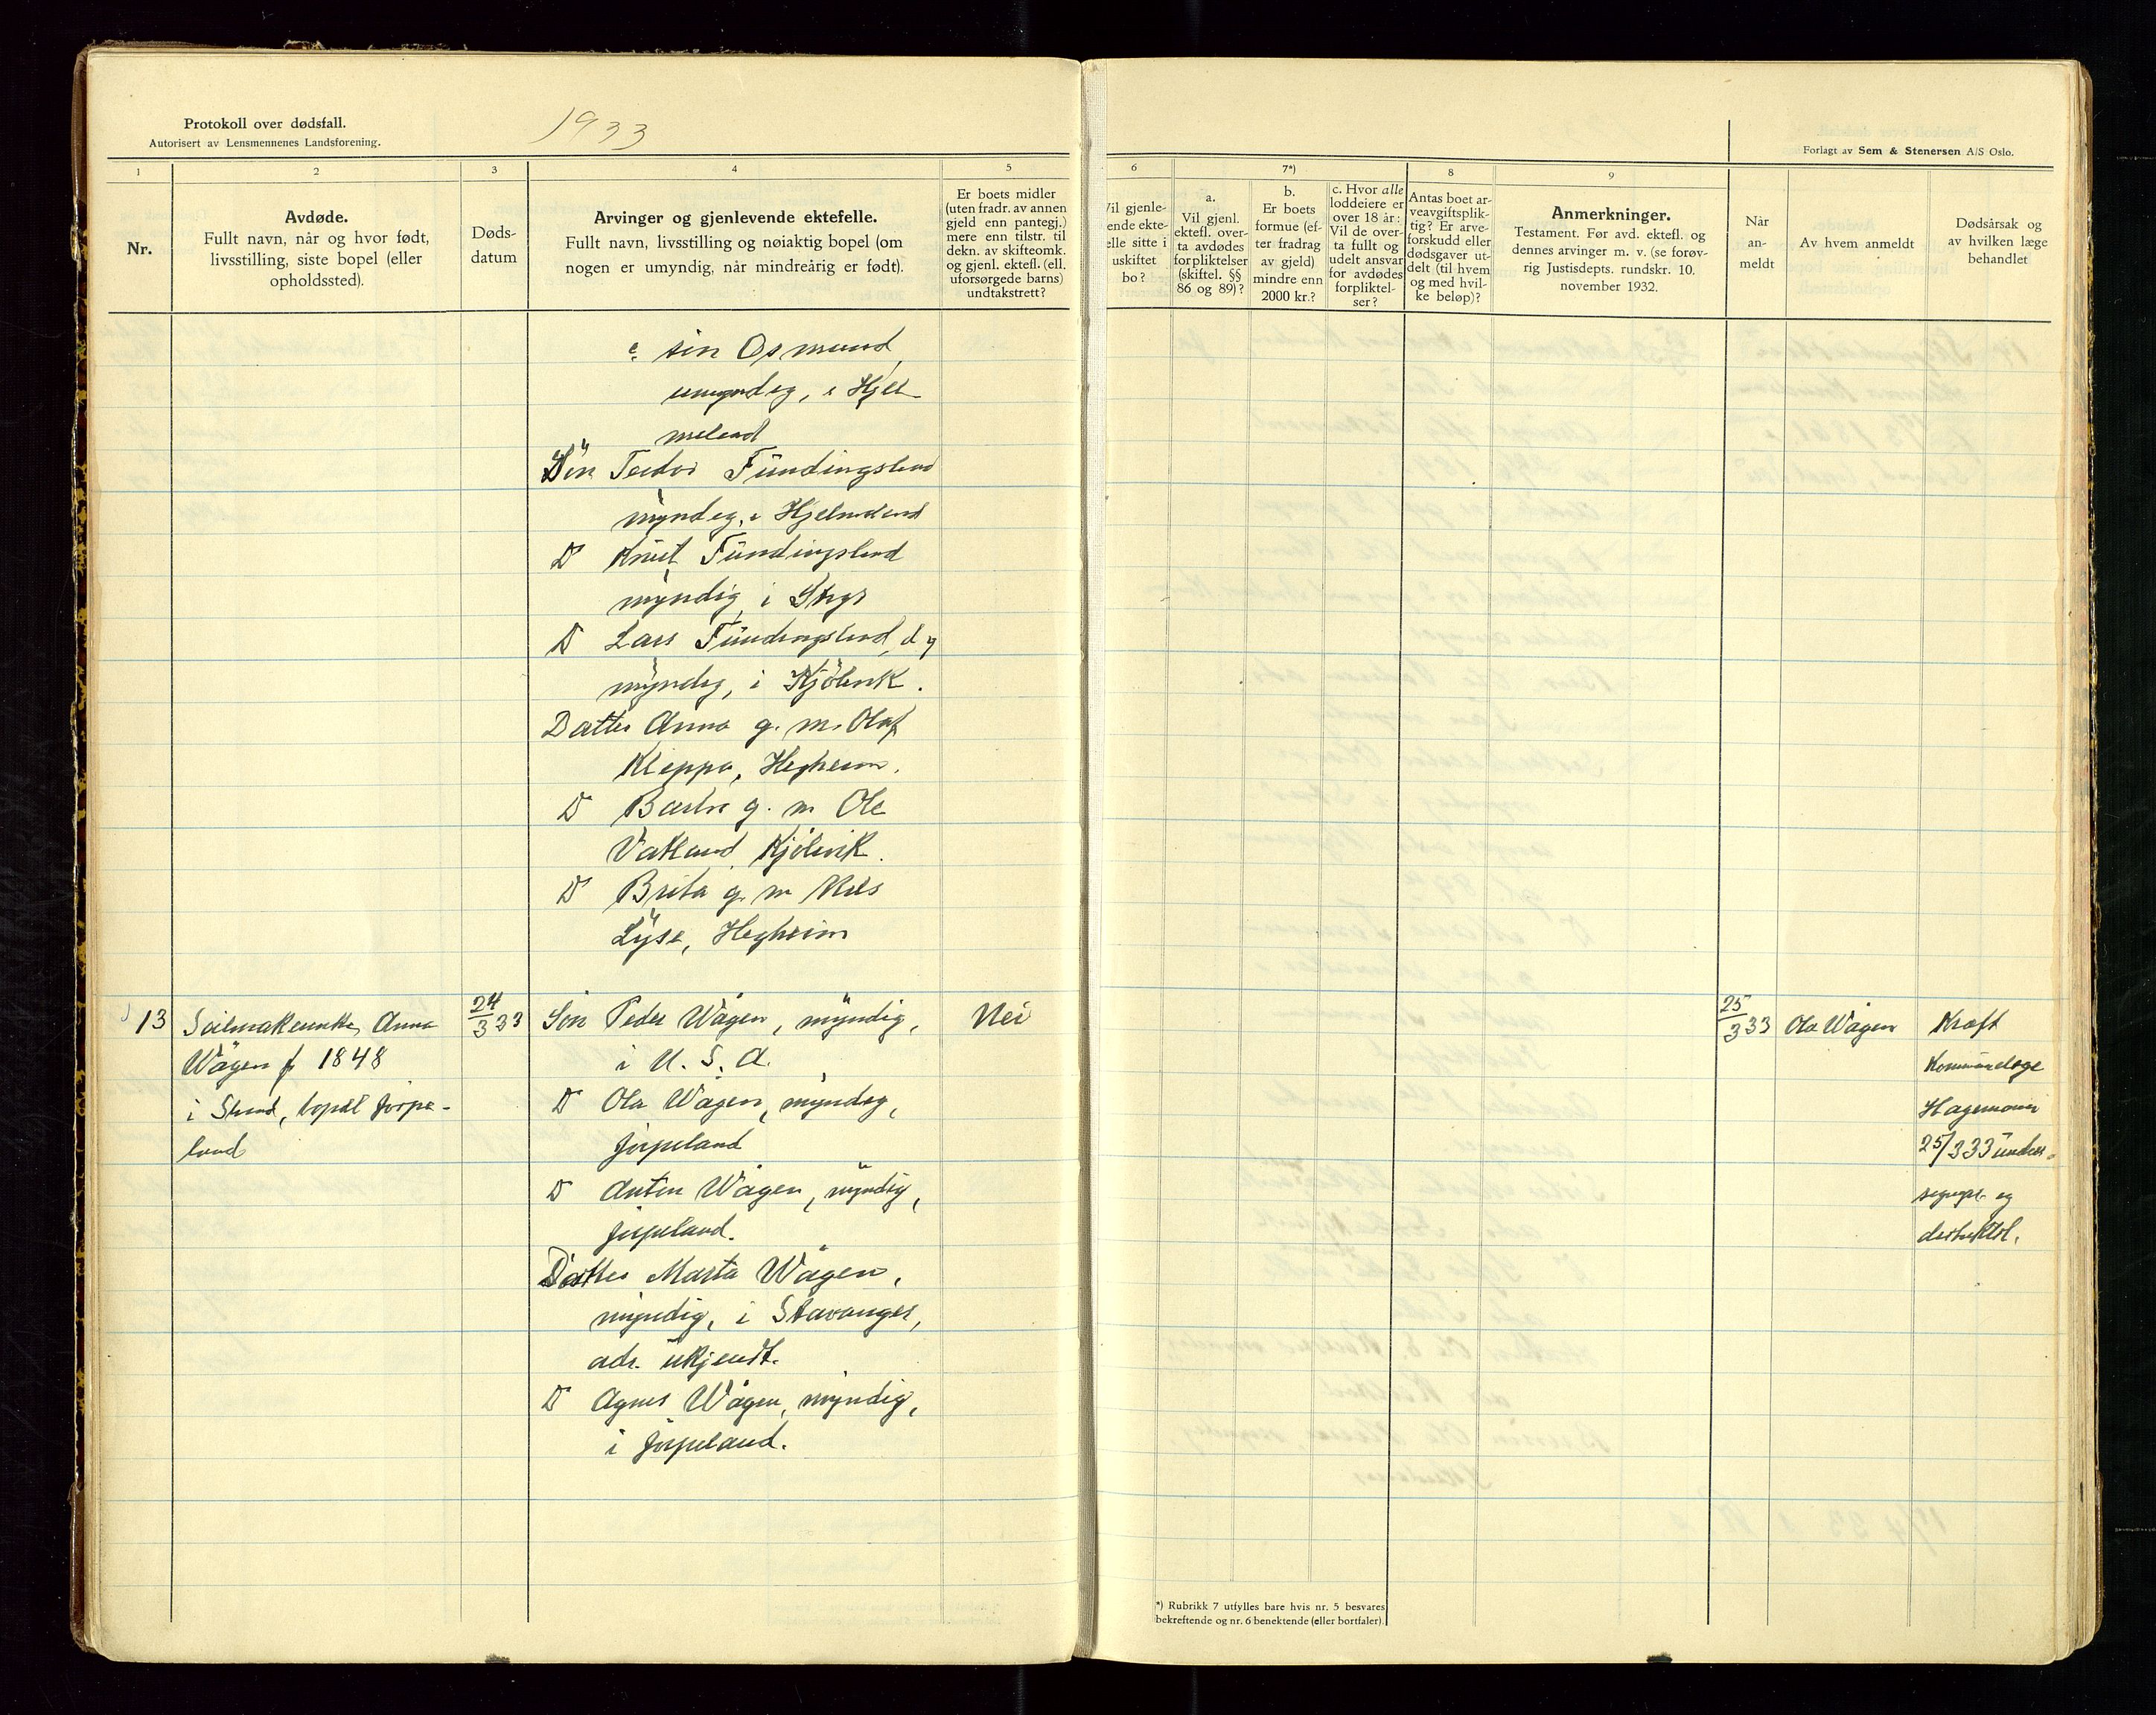 Protokoll over dødsfall.
Autorisert av Lensmennenes Landsforening.
1933
Forlagt av Sem & Stenersen A/S Oslo.
1
2
3
4
5
6
7*)
8
9
Nr.
Avdøde.
Fullt navn, når og hvor født,
livsstilling, siste bopel (eller
opholdssted).
Døds-
datum
Arvinger og gjenlevende ektefelle.
Fullt navn, livsstilling og nøiaktig bopel (om
nogen er umyndig, når mindreårig er født).
Er boets midler
(uten fradr. av annen
gjeld enn pantegj.)
mere enn tilstr. til
dekn. av skifteomk.
og gjenl. ektefl. (ell.
uforsørgede barns)
undtakstrett?
Vil gjenle-
ende ekte-
elle sitte i
uskiftet
bo?
a.
Vil gjenl.
ektefl. over-
ta avdødes
forpliktelser
(skiftel. §§
86 og 89)?
b.
Er boets
formue (ef-
ter fradrag
av gjeld)
mindre enn
2000 kr.?
c. Hvor alle
loddeiere er
over 18 år:
Vil de over-
ta fullt og
udelt ansvar
for avdødes
forpliktel-
ser?
Antas boet ar-
veavgiftsplik-
tig? Er arve-
forskudd eller
dødsgaver ut-
delt (til hvem
og med hvil-
ke beløp)?
Anmerkninger.
Testament. Før avd. ektefl. og
dennes arvinger m. v. (se forøv-
rig Justisdepts. rundskr. 10.
november 1932.
Når
an-
meldt
Av hvem anmeldt
Dødsårsak og
av hvilken læge
behandlet
c. sön Osmund,
umyndig, i Hjel-
meland
Sön Tedor Fundingsland
myndig, i Hjelmeland
D Knut Fundingsland
myndig i
D Lars Fundingsland,
myndig, i Kjölevik.
Datter Anna g. m. Olaf
Kleppa, Hegheim.
D g. m Ole
Vatland, Kjölevik.
D Brita g. m Nils
Lyse, Hegheim
13 Seilmakerenke Anna
Wågen f 1848
i Strand, bopel Jörpe-
land
24/3 33
Sön Peder Wågen, myndig,
i U. S. A.
D Ola Wågen, myndig,
Jörpeland
D Anton Wågen, myndig,
Jörpeland.
Datter Marta Wågen,
myndig, i Stavanger,
adr. ukjendt.
D Agnes Wågen, myndig,
i Jörpeland.
Nei
25/3 33
Ola Wågen
Kræft
Kommunelæge
25/3 33
og
*) Rubrikk 7 utfylles bare hvis nr. 5 besvares
bekreftende og nr. 6 benektende (eller bortfaler).